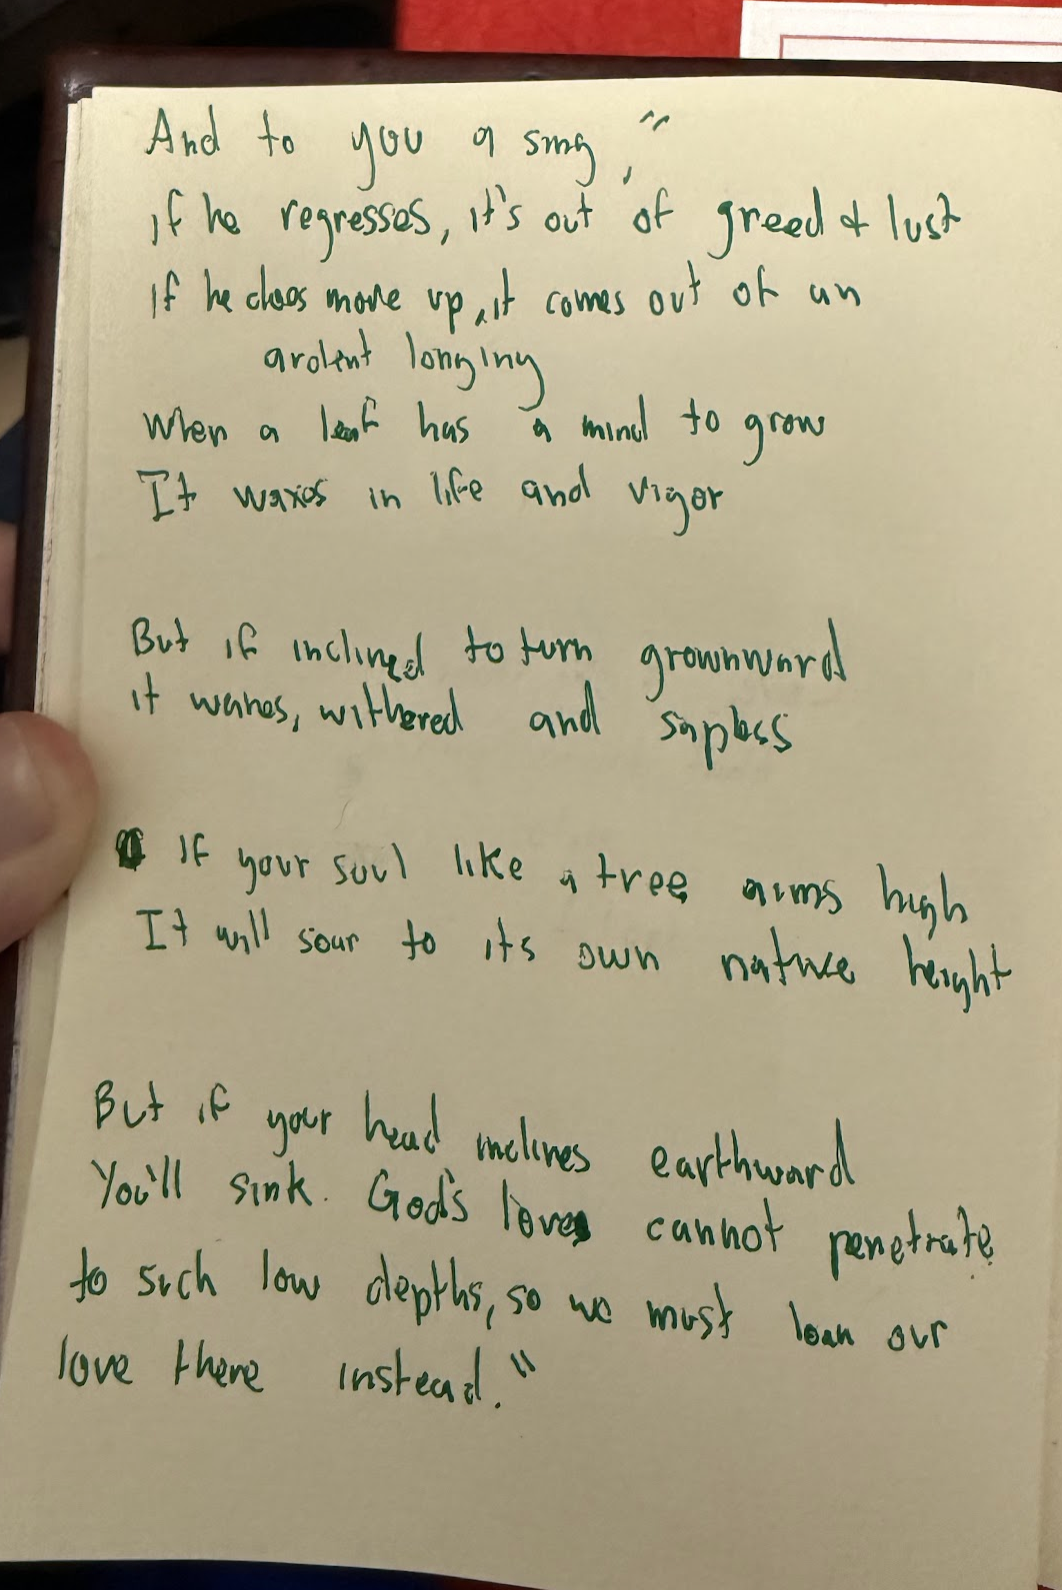 And to you a song,"
if he regresses, it's out of greed & lust
If he does move up, it comes out of an
ardent longing
When a leaf has a mind to grow
It waxes in life and vigor
But if inclined to turn grownward
it wanes, withered and sapless
If your soul like a tree aims high
It will soar to its own nature height
But if your head inclines earthward
You'll sink. God's love cannot penetrate
to such low depths, so we must loan our
love there instead."